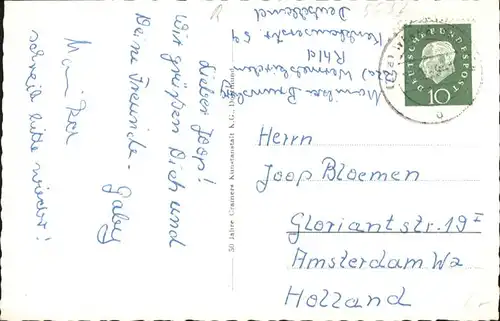 Lieber Joop!
Wir grüßen Dich und
Deine Freunde. Gaby
Monika
schreib bitte wieder!
Monika
(22a) Wermelskirchen
Rhld
54
Deutschland
50 Jahre Cramers Kunstanstalt K.G., Dortmund
DEUTSCHE BUNDESPOST
10
Herrn
Joop Bloemen
Gloriantstr. 19 I
Amsterdam W2
Holland